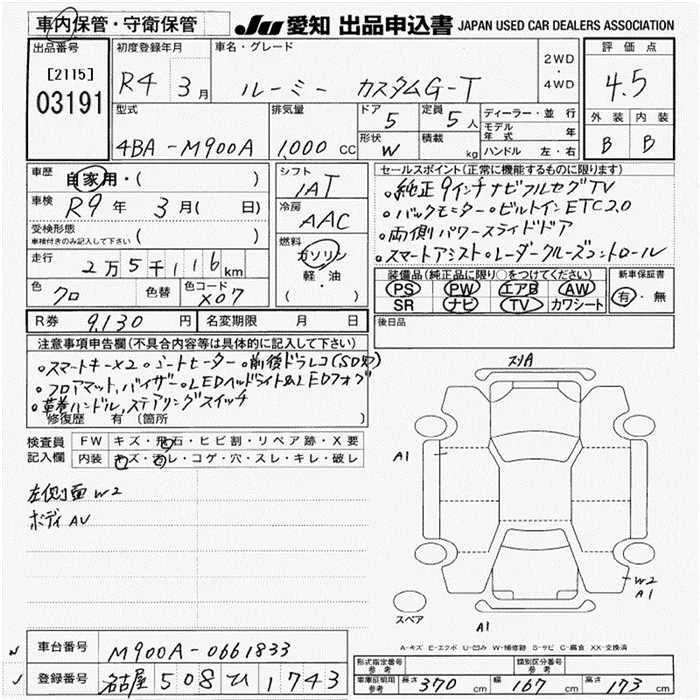 車内保管・守衛保管
JU 愛知 出品申込書 JAPAN USED CAR DEALERS ASSOCIATION
出品番号
[2115]
03191
初度登録年月
R4 3月
車名・グレード
ルーミー カスタムG-T
2WD
・
4WD
評価点
4.5
外装 内装
B B
型式
4BA-M900A
排気量
1,000 CC
ドア
5
定員
5人
形状
W
積載
kg
ディーラー・並行
モデル年式 年
ハンドル 左・右
車歴
自家用・( )
車検
R9年 3月( 日)
受検形態
車検付きのみ記入して下さい ( )
走行
2万5千116km
色
クロ
色替
色コード
X07
シフト
IAT
冷房
AAC
燃料
ガソリン
軽・油
( )
セールスポイント(正常に機能するものに限ります)
。純正9インチナビフルセグTV
。バックモニター。ビルトインETC2.0
。両側パワースライドドア
。スマートアシスト。レーダークルーズコントロール
装備品(純正品に限り○をつけてください)
PS PW エアB AW
SR ナビ TV カワシート
新車保証書
有・無
R券 9,130円
名変期限 月 日
後日品
注意事項申告欄(不具合内容等は具体的に記入して下さい)
。スマートキーX2。シートヒーター。前後ドラレコ(SD欠)
。フロアマット,バイザー。LEDヘッドライト&LEDフォグ
。革巻ハンドル,ステアリングスイッチ
修復歴 有 (箇所 )
検査員記入欄
FW キズ・飛石・ヒビ割・リペア跡・X要
内装 キズ・汚レ・コゲ・穴・スレ・キレ・破レ
左側面W2
ボディAU
スリA
A1
A1
W2
A1
A1
スペア
A-キズ E-エクボ U-凹み W-補修跡 S-サビ C-腐食 XX-交換済
車台番号 M900A-0661833
登録番号 名古屋 508 ひ 1743
形式指定番号
参考
類別区分番号
参考
車庫証明用
参考
長さ 370 cm 幅 167 cm 高さ 173 cm